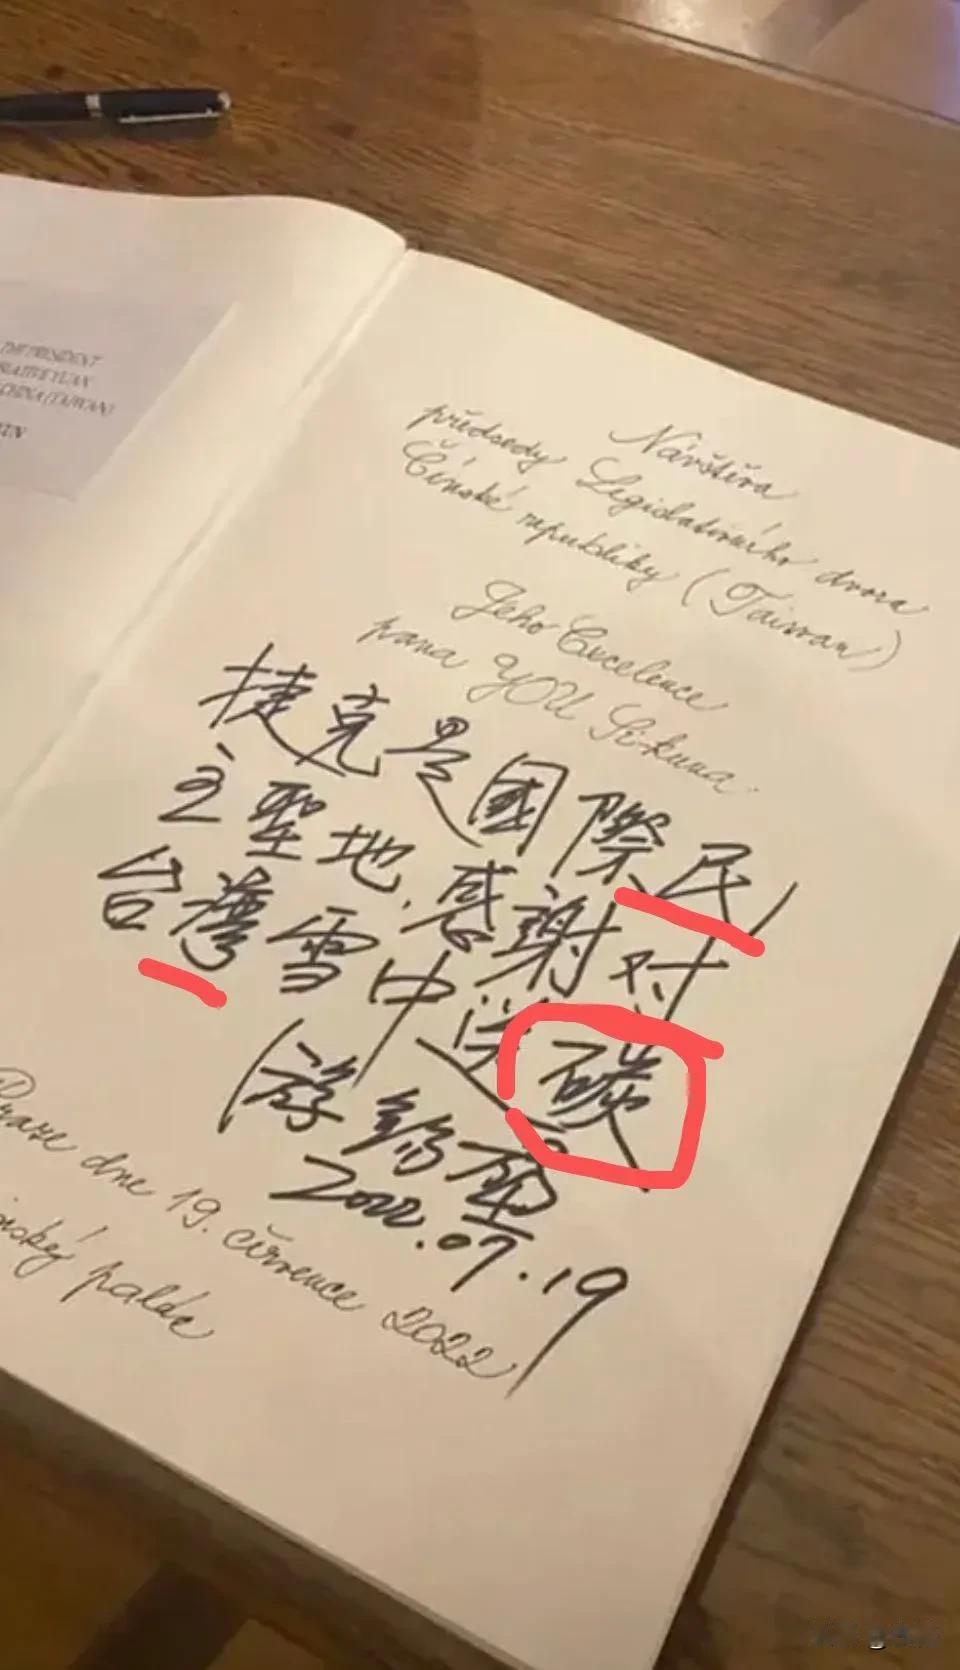 THE PRESIDENT
CHINA (TAIWAN)
Návštěva
předsedy Legislativního dvora
Čínské republiky (Taiwan)
Jeho Excelence
pana YOU Si-kuna
捷克是國際民
主聖地.感謝対
台灣雪中送碳
游錫堃
2022.07.19
Praze dne 19. července 2022
palác